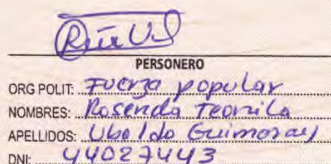 PERSONERO
ORG POLIT: Fuerza popular
NOMBRES: Rosenda Teonila
APELLIDOS: Ubaldo Guimaray
DNI: 44027443